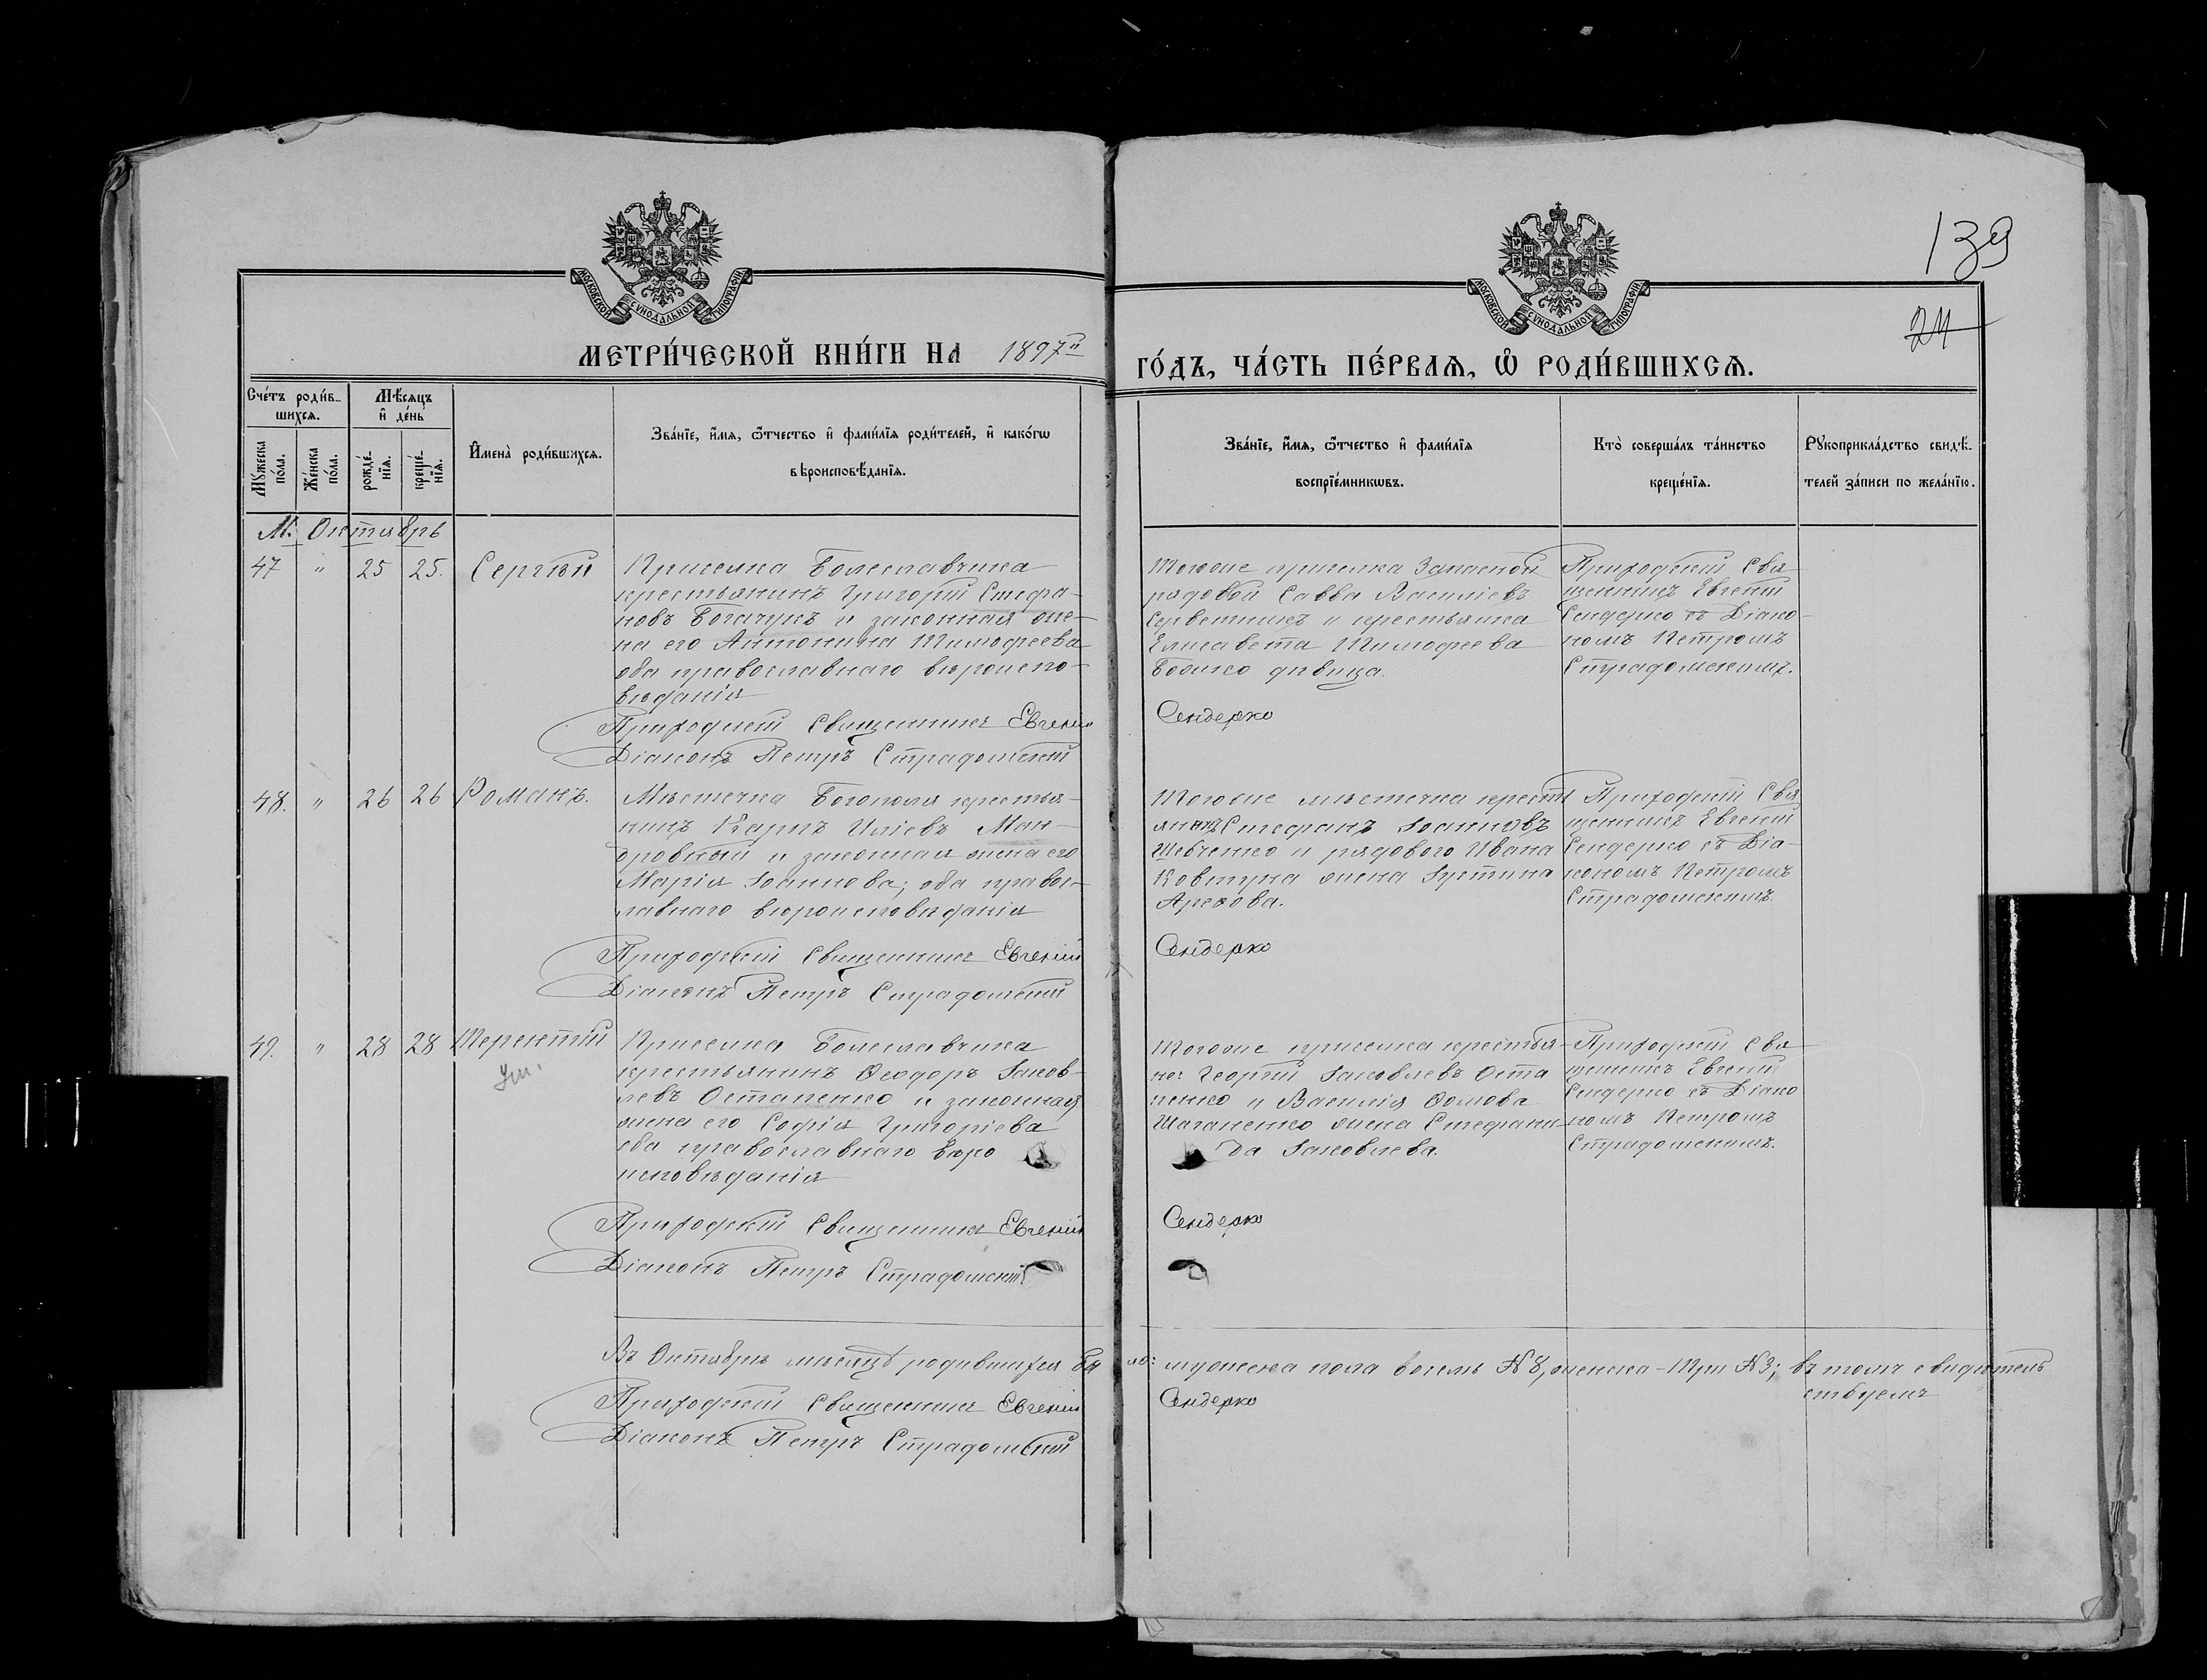 МОСКОВСКОЙ СѴНОДАЛЬНОЙ ТИПОГРАФІИ
МОСКОВСКОЙ СѴНОДАЛЬНОЙ ТИПОГРАФІИ
139
24
МЕТРИ́ЧЕСКОЙ КНИ́ГИ НА 1897й
ГО́ДЪ, ЧА́СТЬ ПЕ́РВАѦ, Ѡ҆ РОДИ́ВШИХСѦ.
Сче́тъ роди́в-
шихсѧ.
Мꙋ́жеска по́ла.
Же́нска по́ла.
Мѣ́сѧцъ
и҆ де́нь
рожде́-нїѧ.
креще́-нїѧ.
И҆мена̀ роди́вшихсѧ.
Зва́нїе, и҆́мѧ, ѻ҆́тчество и҆ фами́лїѧ роди́телей, и҆ како́гѡ
вѣроисповѣ́данїѧ.
Зва́нїе, и҆́мѧ, ѻ҆́тчество и҆ фами́лїѧ
воспрїе́мникѡвъ.
Кто̀ соверша́лъ та́инство
креще́нїѧ.
Рꙋкоприкла́дство свидѣ́-
телей за́писи по жела́нїю.
М. Октябрь
47 " 25 25. Сергѣй
Приселка Болеславчика
крестьянинъ Григорій Стефа-
новъ Богачукъ и законная же-
на его Антонина Тимофеева
оба православнаго вѣроиспо-
вѣданія
Приходскій Священникъ Евгеній
Діаконъ Петръ Страдомскій
Тогоже приселка Запасной
рядовой Савва Василіевъ
и крестьянка
Елисавета Тимофеева
Бойко дѣвица.
Сендерко
Приходскій Свя
щенникъ Евгеній
Сендерко съ Діако-
номъ Петромъ
Страдомскимъ.
48. " 26 26 Романъ.
Мѣстечка Богополя крестья-
нинъ Карпъ Иліевъ Ман-
дровный и законная жена его
Марія Іоаннова; оба правос-
лавнаго вѣроисповѣданія
Приходскій Священникъ Евгеній
Діаконъ Петръ Страдомскій
Тогоже мѣстечка кресть
янинъ Стефанъ Іоанновъ
Шевченко и рядового Ивана
Ковтуна жена Іустина
Сендерко
Приходскій Свя
щенникъ Евгеній
Сендерко съ Діа-
кономъ Петромъ
Страдомскимъ.
49. " 28 28 Терентій
ум.
Приселка Болеславчика
крестьянинъ Ѳеодоръ Іаков-
левъ Остапенко и законная
жена его Софія Григоріева
оба православнаго вѣро
исповѣданія
Приходскій Священникъ Евгеній
Діаконъ Петръ Страдомскій
Тогоже приселка крестья-
не: Георгій Іаковлевъ Оста
пенко и Василія Ѳомова
жена Стефани-
да Іаковлева.
Сендерко
Приходскій Свя
щенникъ Евгеній
Сендерко съ Діако
номъ Петромъ
Страдомскимъ.
Въ Октябрѣ мѣсяцѣ родившихся бы
ло: мужеска пола восемь №8, женска - три №3; въ томъ свидѣтель
ствуемъ
Приходскій Священникъ Евгеній
Сендерко
Діаконъ Петръ Страдомскій